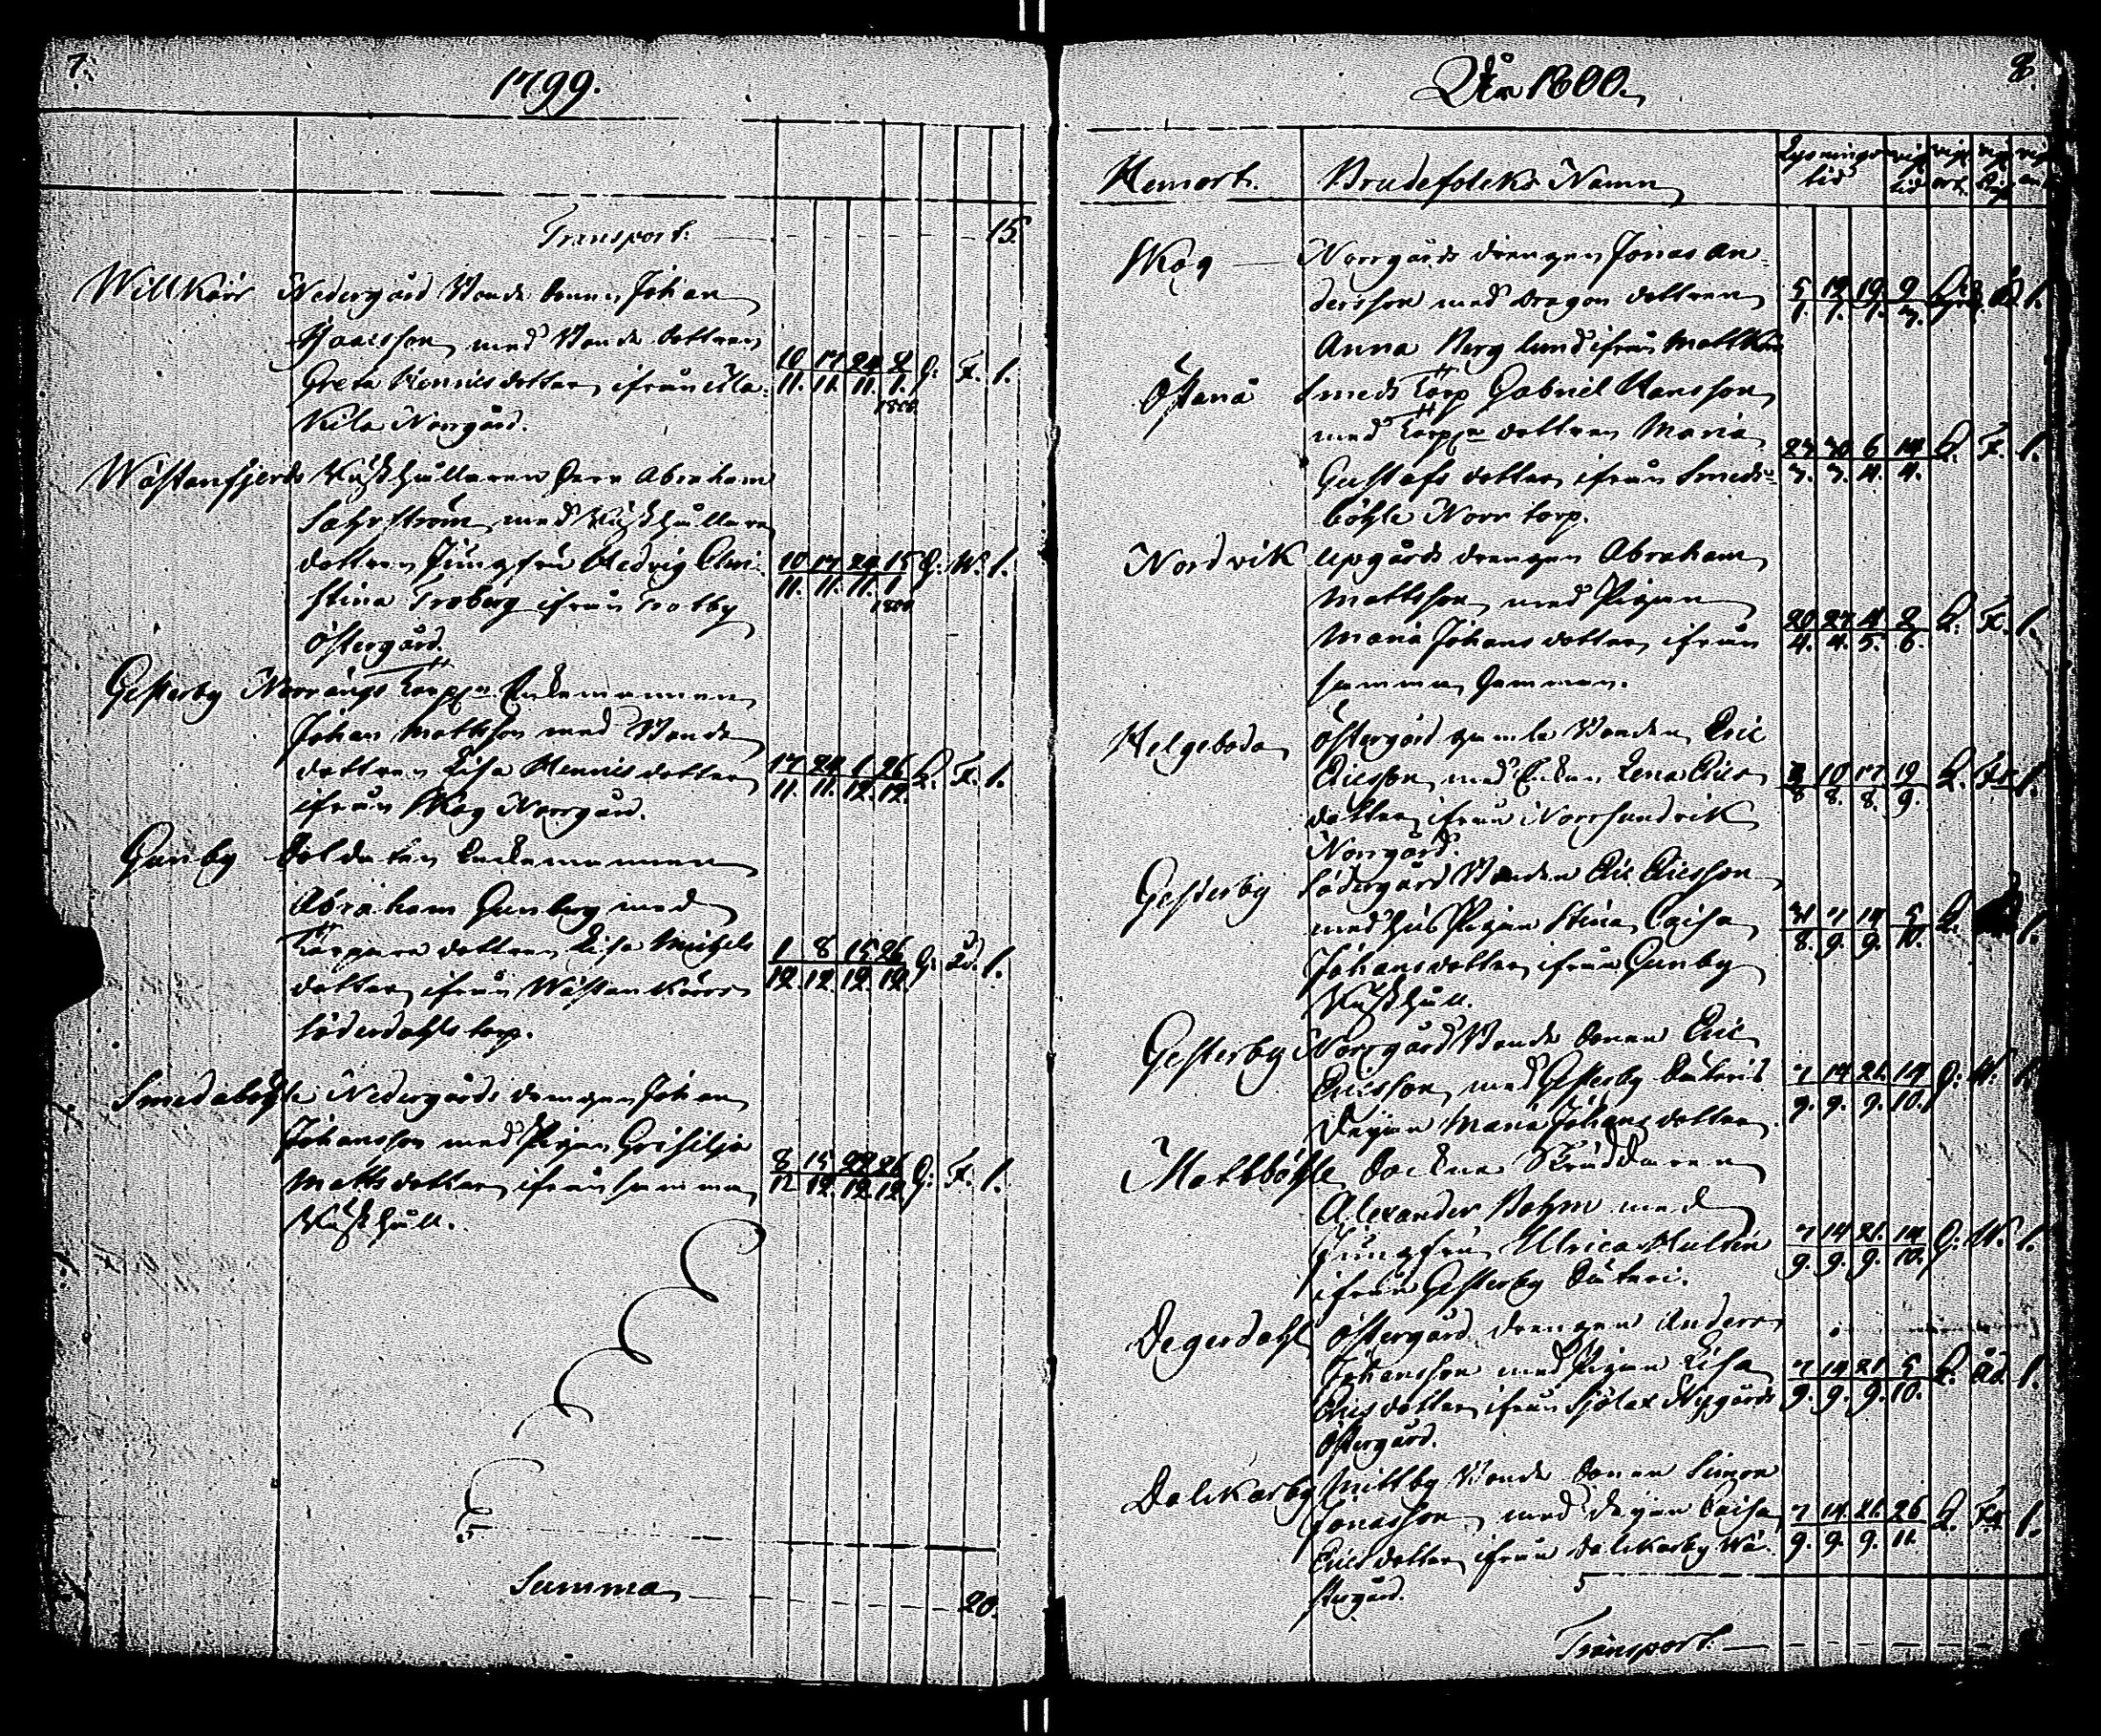 7.
1799.
Transport. 15.
Willkärr Nedergård Bonde Sonen Johan
Isaacsson med Bonde dottren
Greta Hennics dotter ifrån Illa-
10 17 24 2 G: F. 1.
11. 11. 11. 1.
1800
Kila Norrgård.
Wästanfjerds Rusthållaren Herr Abraham
Sahrström med Rusthållare
dottren Jungfru Hedvig Chri-
10 17 24 15 G: W. 1.
11. 11. 11. 1
1800
stina Troberg ifrån Trotby
Östergård.
Gesterby Norrängs Enkemannen
Johan Mattsson med Bonde
dottren Lisa Hennics dotter
17 24 1 26 G. F. 1.
11. 11. 12. 12.
ifrån Skog Norrgård.
Gunby Soldaten Enkemannen
Abraham Gunberg med
Torpare dottren Lisa Michels
1 8 15 26 G: 1.
12. 12. 12. 12.
dotter ifrån Wästankärr
Söderdahls torp.
Smedsböhle Nedergårds drengen Johan
Johansson med Pigan Grisilja
Matts dotter ifrån samma
8 15 22 26 G: F. 1.
12 12. 12. 12
Rusthåll.
Summa 20.
8
År 1800.
Hemort. Brudefolcks Namn Lysnings tid vig tid vig ort.
Skog Norrgårds drengen Jonas An-
dersson med Dragon dottren
5 12 19 2 1.
1. 1. 1. 3.
Anna Berglund ifrån Mattkärr
Östanå Smeds Torp Gabriel Hansson
med dottren Maria
23 30 6 14 G. F. 1.
3. 3. 4. 4.
Gustafs dotter ifrån Smeds-
böhle Norr torp.
Nordvik Upgårds drengen Abraham
Mattsson med Pigan
Maria Johans dotter ifrån
20 27 4 2 G. F. 1.
4. 4. 5. 6.
samma Hemman.
Helgeboda Östergård gamle Bonden Eric
Ericsson med Enkan Lena Erics
10 17 19 G. 1.
8 8. 8. 9.
dotter ifrån Norrsundvik
Norrgård.
Gesterby Södergård Bonden Eric Ericsson
med Pigan Stina Caisa
31 7 14 5 G. 1.
8. 9. 9. 10.
Johans dotter ifrån Gunby
Rusthåll.
Gesterby Norrgård Bonde Sonen Eric
Ericsson med Gesterby Säteris
7 14 21 14 G: W. 1.
9. 9. 9. 10.
Pigan Maria Johans dotter.
Mattböhle Sockne Skräddaren
Alexander Bohm med
Jungfru Ulrica Hultin
7 14 21. 14 G: W. 1.
9. 9. 9. 10.
ifrån Gesterby Säteri.
Degerdahl Östergård drengen Anders
Johansson med Pigan Lisa
7 14 21 5 G. 1.
9. 9. 9. 10.
Erics dotter ifrån Sjölax Nygårds
Östergård.
Dalskarby Mittby Bonde Sonen Simon
Jonasson med Pigan Caisa
7 14 21. 26 G. 1.
9. 9. 9. 11.
Erics dotter ifrån Dalskarby Wä-
stergård.
Transport.